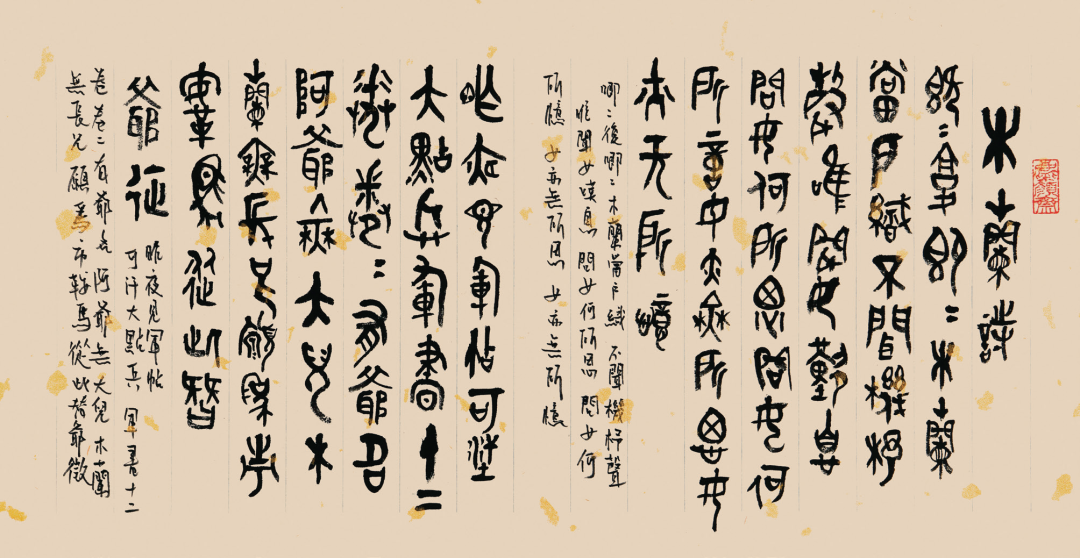 木蘭詩
即二复即二木蘭
當戶織不聞機杼
聲唯聞女歎息
問女何所思問女何
所憶女亦無所思女
亦无所憶
唧二復唧二木蘭當戶織 不聞機杼聲
惟聞女嘆息 問女何所思 問女何
所憶 女亦無所思 女亦無所憶
昨夜見軍帖可汗
大點兵軍書十二
卷卷二有爺名
阿爺無大兒木
蘭無長兄願爲市
鞍馬從此替
爺征
昨夜見軍帖
可汗大點兵 軍書十二
卷卷二有爺名 阿爺無大兒 木蘭
無長兄 願爲市鞍馬 從此替爺徵